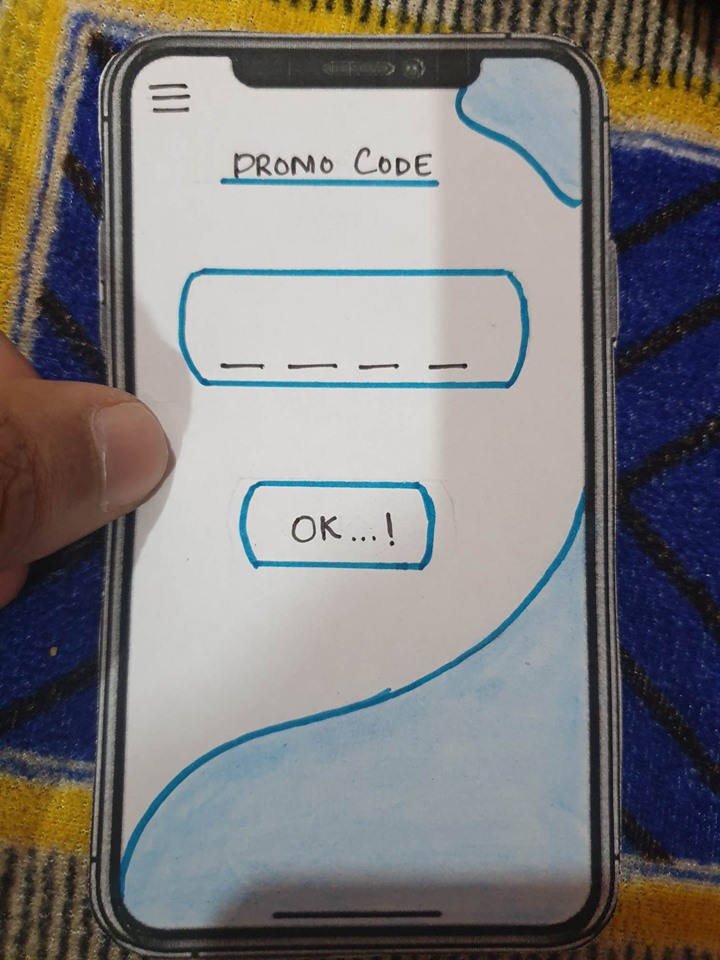 PROMO CODE
_ _ _ _
OK...!